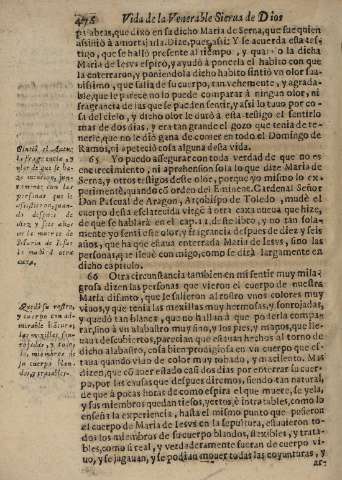 476 Vida de la Venerable Sierua de Dios
palabras, que dixo en su dicho Maria de Serna, que fue quien
assistiò à amortajarla. Dize, pues, assi: Y se acuerda esta tes-
tigo, que se hallò presente al tiempo, y quando la dicha
Maria de Iesus espirò, y ayudò à ponerla el habito con que
la enterraron, y poniendola dicho habito sintiò vn olor sua-
uissimo, que salia de su cuerpo, tan vehemente, y agrada-
ble, que le parece no lo puede comparar à ningun olor, ni
fragrancia de las que se pueden sentir, y assi lo tuuo por co-
sa del cielo, y dicho olor le durò à esta testigo el sentirlo
mas de dos dias, y era tan grande el gozo que tenia de te-
nerle, que no le diò gana de comer en todo el Domingo de
Ramos, ni apeteciò cosa alguna desta vida.
65 Yo puedo assegurar con toda verdad de que no es
encarecimiento, ni aprehension sola lo que dize Maria de
Serna, y otros testigos deste olor, porque yo mismo lo ex-
perimentè, quando cõ orden del Eminent. Cardenal Señor
Don Pasqual de Aragon, Arçobispo de Toledo, mudè el
cuerpo desta esclarecida virgẽ à otra caxa nueua que hize,
de que se hablarà en el cap. deste libro, y no tan sola-
mente yo sentì este olor, y fragrancia despues de diez y seis
años, que ha que estaua enterrada Maria de Iesus, sino las
personas, que lleuè con migo, como se dirà largamente en
dicho capitulo.
66 Otra circunstancia tambien en mi sentir muy mila-
grosa dizen las personas que vieron el cuerpo de nuestra
Maria difunto, que le salieron al rostro vnos colores muy
viuos, y que tenia las mexillas muy hermosas, y sonrojadas,
y quedò tan blanca, que no hallan à que poderla compa-
rar, sino à vn alabastro muy fino, y los pies, y manos, que lle-
uaua descubiertos, parecian que estauan hechos al torno de
dicho alabastro, cosa bien prodigiosa en vn cuerpo que es-
taua quando viuo de color muy tostado, y macilento. Mas
dizen, que cõ auer estado casi dos dias por enterrar su cuer-
po, por las causas que despues diremos, siendo tan natural,
de que à pocas horas de como espira el que muere, se yela,
y sus miembros quedan tiesos, yertos, è intratables, como lo
enseña la experiencia, hasta el mismo punto que pusieron
el cuerpo de Maria de Iesus en la sepultura, estuuieron to-
dos los miembros de su cuerpo blandos, flexibles, y trata-
bles, como si real, y verdaderamente fueran de cuerpo vi-
uo, y se jugauan, y se podian mouer todas las coyunturas, y
Sintiò el Autor
la fragrancia, y
olor de que se ha-
ze mencion, jun-
tamente con las
personas que le
assistieron, quan-
do despues de
diez y seis años
de la muerte de
Maria de Iesus
la mudò à otra
caxa.
Quedò su rostro,
y cuerpo con ad-
mirable blancura,
las mexillas son-
rojadas, y todos
los miembros de
su cuerpo blan-
dos, y tratables.